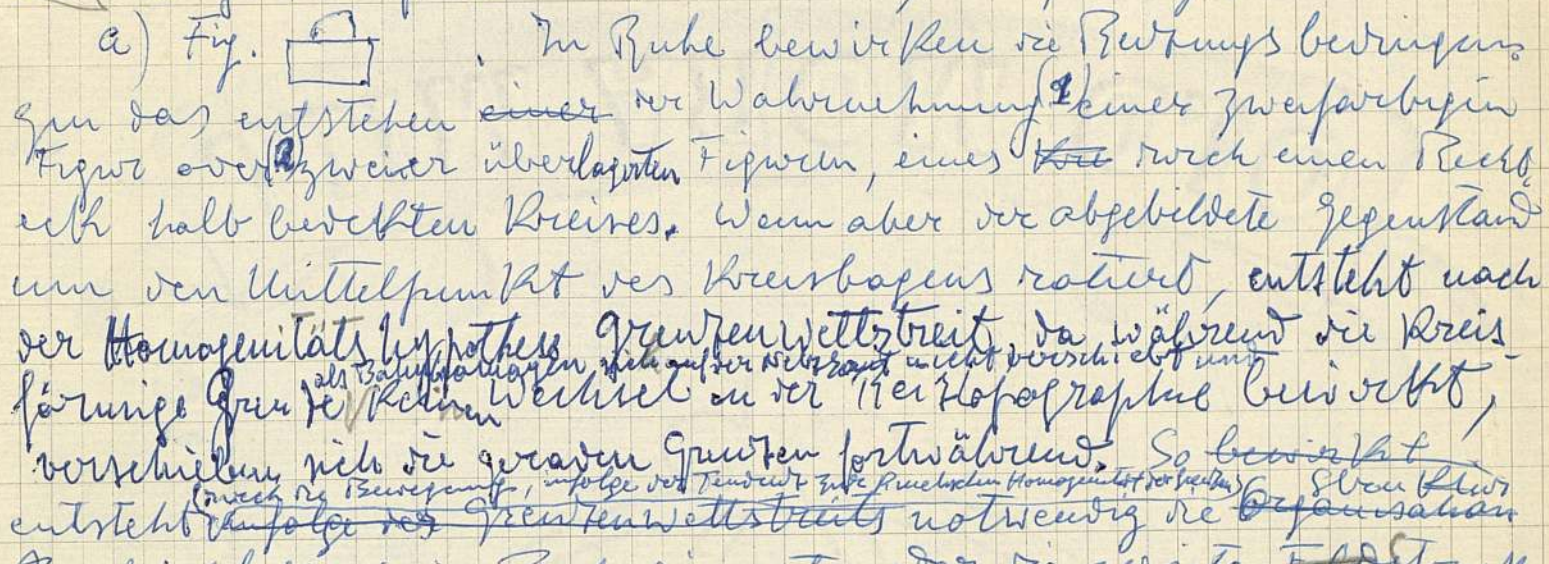 a) Fig. . In Ruhe bewirken die Reizungsbedingun-
gen das entstehen einer der Wahrnehmung (1) einer zweifarbigen
Figur oder (2) zweier überlagerten Figuren, eines Kre durch einen Recht-
eck halb bedekten Kreises. Wenn aber der abgebildete Gegenstand
um den Mittelpunkt des Kreisbogens rotiert, entsteht nach
der Homogenitätshypothese Grenzenwettstreit, da während die Kreis
als sich auf der Netzhaut nicht verschiebt und
förmige Grenze keinen Wechsel in der Reiztopographie bewirkt,
verschieben sich die geraden Grenzen fortwährend. So bewirkt
(durch die Bewegung, infolge der Tendenz zur kinetischen Homogenität der Grenzen)
entsteht infolge des Grenzenwettstreits notwendig die Organisation